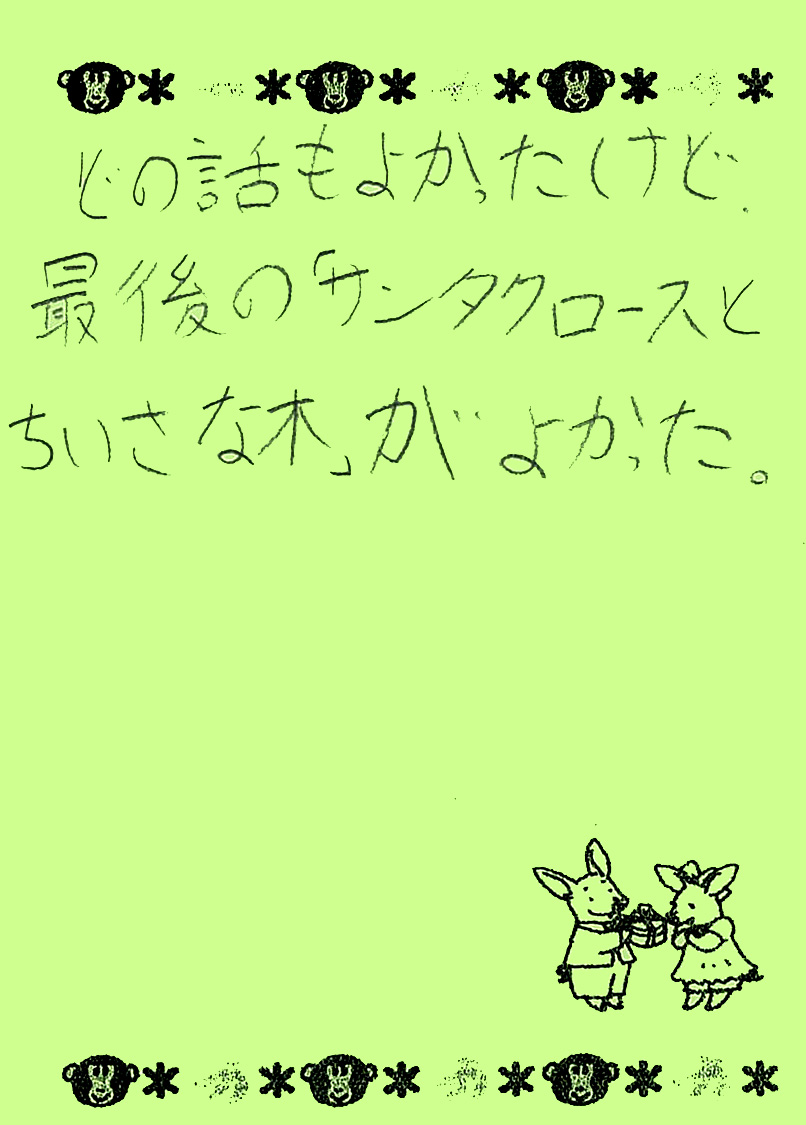 どの話もよかったけど、
最後の「サンタクロースと
ちいさな木」がよかった。